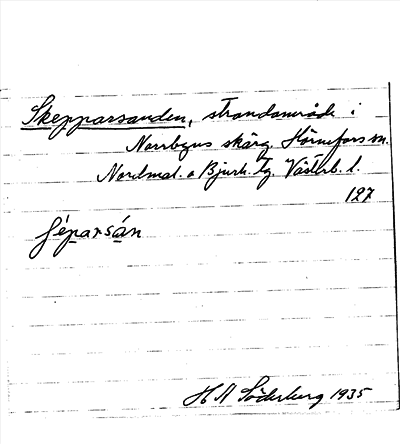 Skepparsanden, strandområde i
Norrbyns skärg. Hörnefors sn.
Nordmal. o Bjurh. tg. Västerb. l.
127
šéparsán
H A Söderberg 1935